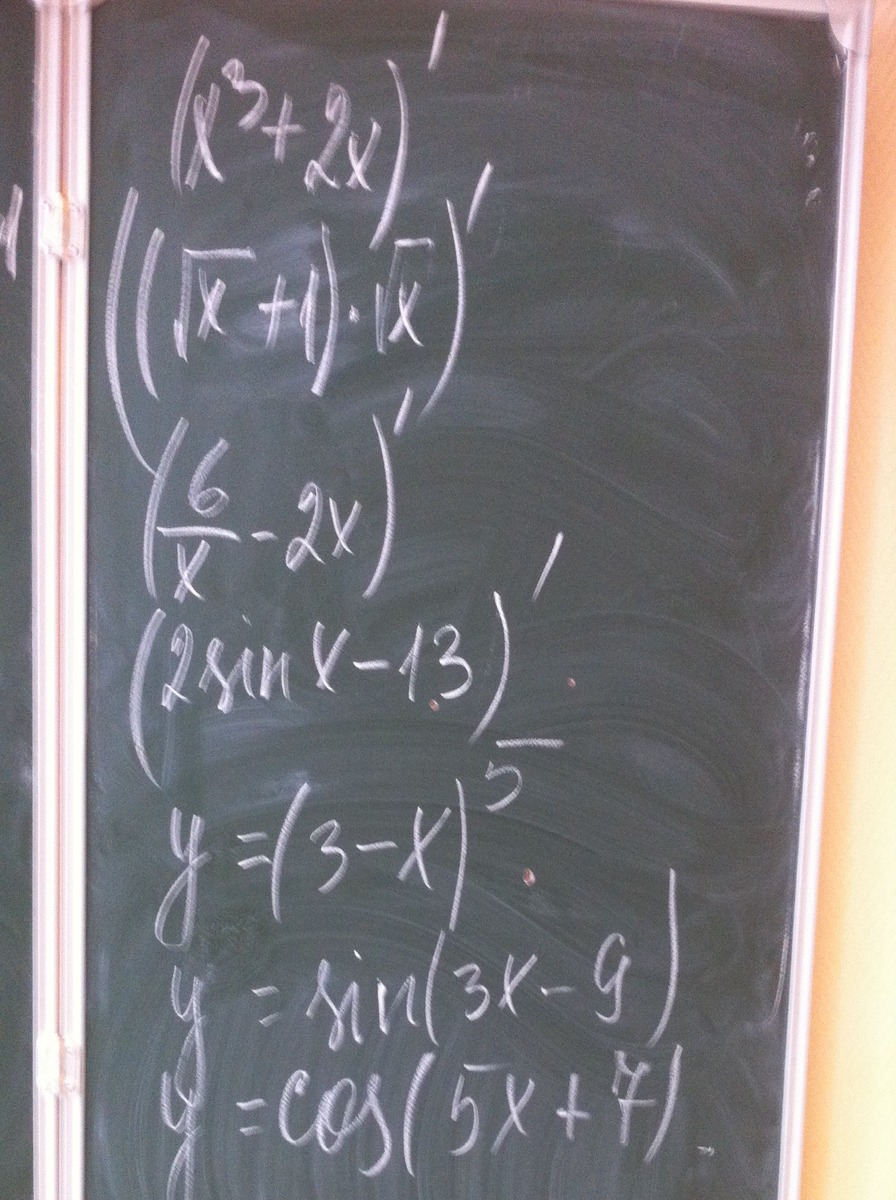 (x³+2x)'
((√x+1)·√x)'
(6/x-2x)'
(2sinx-13)'
y=(3-x)⁵
y=sin(3x-9)
y=cos(5x+7)